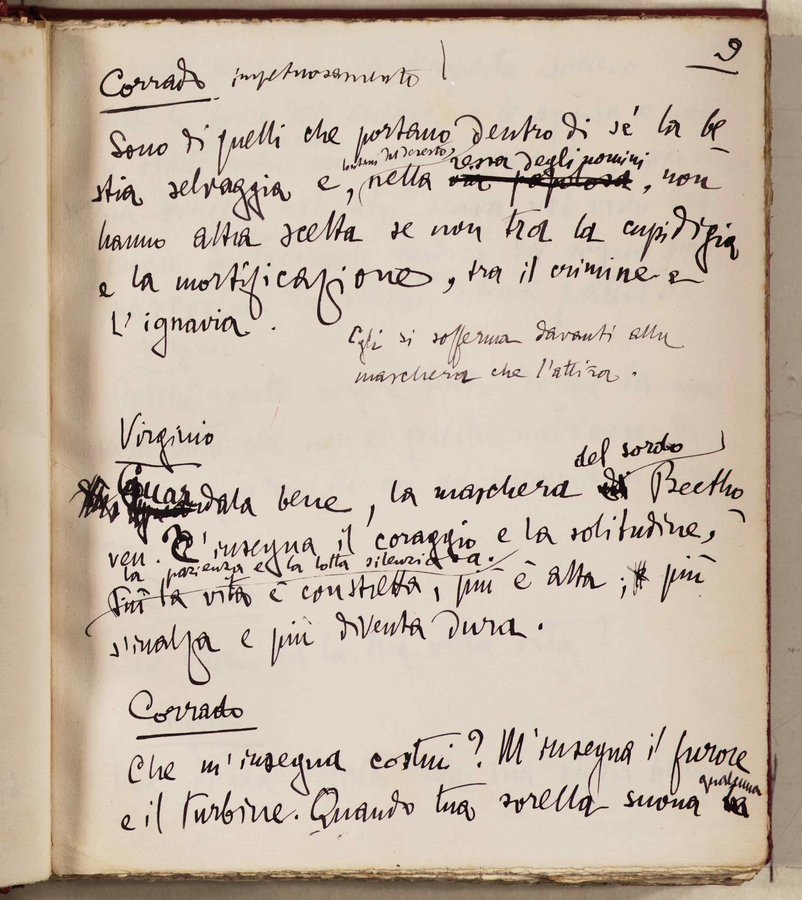 9
Corrado impetuosamente
Sono di quelli che portano dentro di sé la be
lontani dal deserto,
ressa degli uomini
stia selvaggia e, nella via popolosa, non
hanno altra scelta se non tra la cupidigia
e la mortificazione, tra il crimine e
l'ignavia.
Egli si sofferma davanti alla
maschera che l'attira.
Virginio
del sordo
Guardala bene, la maschera di Beetho
ven. T'insegna il coraggio e la solitudine,
la pazienza e la lotta silenziosa.
Più la vita è costretta, più è alta; più
s'inalza e più diventa dura.
Corrado
Che m'insegna costui? M'insegna il furore
qualcuna
e il turbine. Quando tua sorella suona